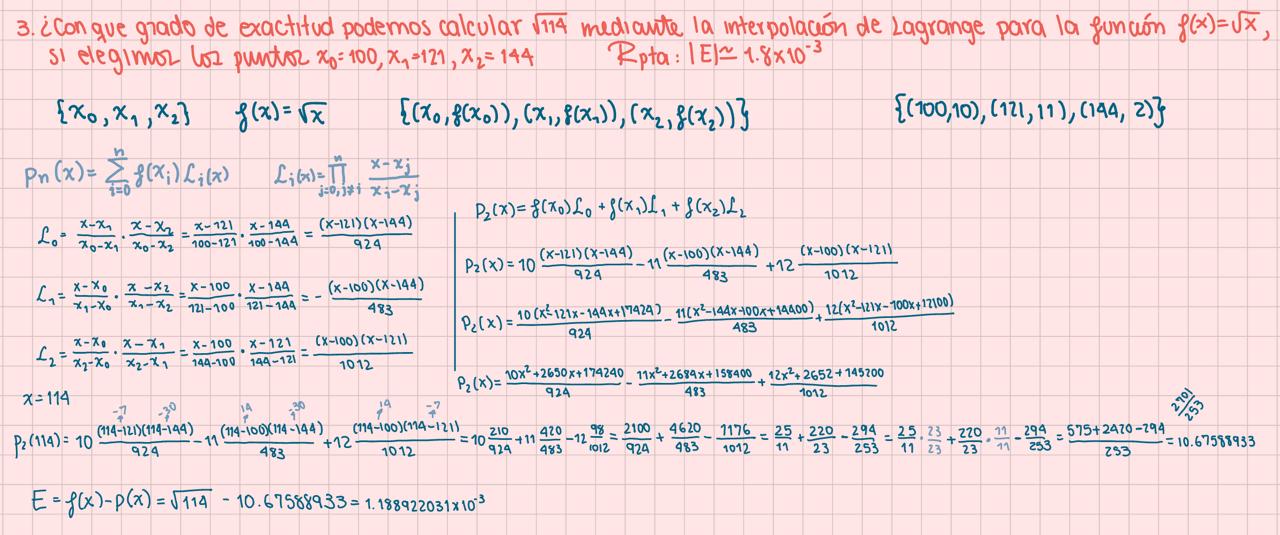 3. ¿Con que grado de exactitud podemos calcular √114 mediante la interpolación de Lagrange para la función f(x)=√x,
si elegimos los puntos x₀=100, x₁=121, x₂=144 Rpta: |E|≃ 1.8x10⁻³
{x₀, x₁, x₂} f(x)=√x {(x₀,f(x₀)),(x₁,f(x₁)),(x₂,f(x₂))} {(100,10),(121,11),(144, 2)}
Pn(x)= ∑ⁿᵢ₌₀ f(xᵢ)Lᵢ(x) Lᵢ(x)= ∏ⁿⱼ₌₀,ⱼ≠ᵢ (x-xⱼ)/(xᵢ-xⱼ)
L₀= (x-x₁)/(x₀-x₁) · (x-x₂)/(x₀-x₂) = (x-121)/(100-121) · (x-144)/(100-144) = (x-121)(x-144)/924
L₁= (x-x₀)/(x₁-x₀) · (x-x₂)/(x₁-x₂) = (x-100)/(121-100) · (x-144)/(121-144) = - (x-100)(x-144)/483
L₂= (x-x₀)/(x₂-x₀) · (x-x₁)/(x₂-x₁) = (x-100)/(144-100) · (x-121)/(144-121) = (x-100)(x-121)/1012
P₂(x)= f(x₀)L₀ + f(x₁)L₁ + f(x₂)L₂
P₂(x)= 10 (x-121)(x-144)/924 - 11 (x-100)(x-144)/483 + 12 (x-100)(x-121)/1012
P₂(x)= 10(x²-121x-144x+17424)/924 - 11(x²-144x-100x+14400)/483 + 12(x²-121x-100x+12100)/1012
P₂(x)= 10x²+2650x+174240/924 - 11x²+2684x+158400/483 + 12x²+2652+145200/1012
x=114
-7 -30 14 -30 14 -7
P₂(114)= 10 (114-121)(114-144)/924 - 11 (114-100)(114-144)/483 + 12 (114-100)(114-121)/1012 = 10 210/924 + 11 420/483 - 12 98/1012 = 2100/924 + 4620/483 - 1176/1012 = 25/11 + 220/23 - 294/253 = 25/11 · 23/23 + 220/23 · 11/11 - 294/253 = 575+2420-294/253 = 10.67588933
2701/253
E = f(x)-p(x) = √114 - 10.67588933 = 1.188922031x10⁻³